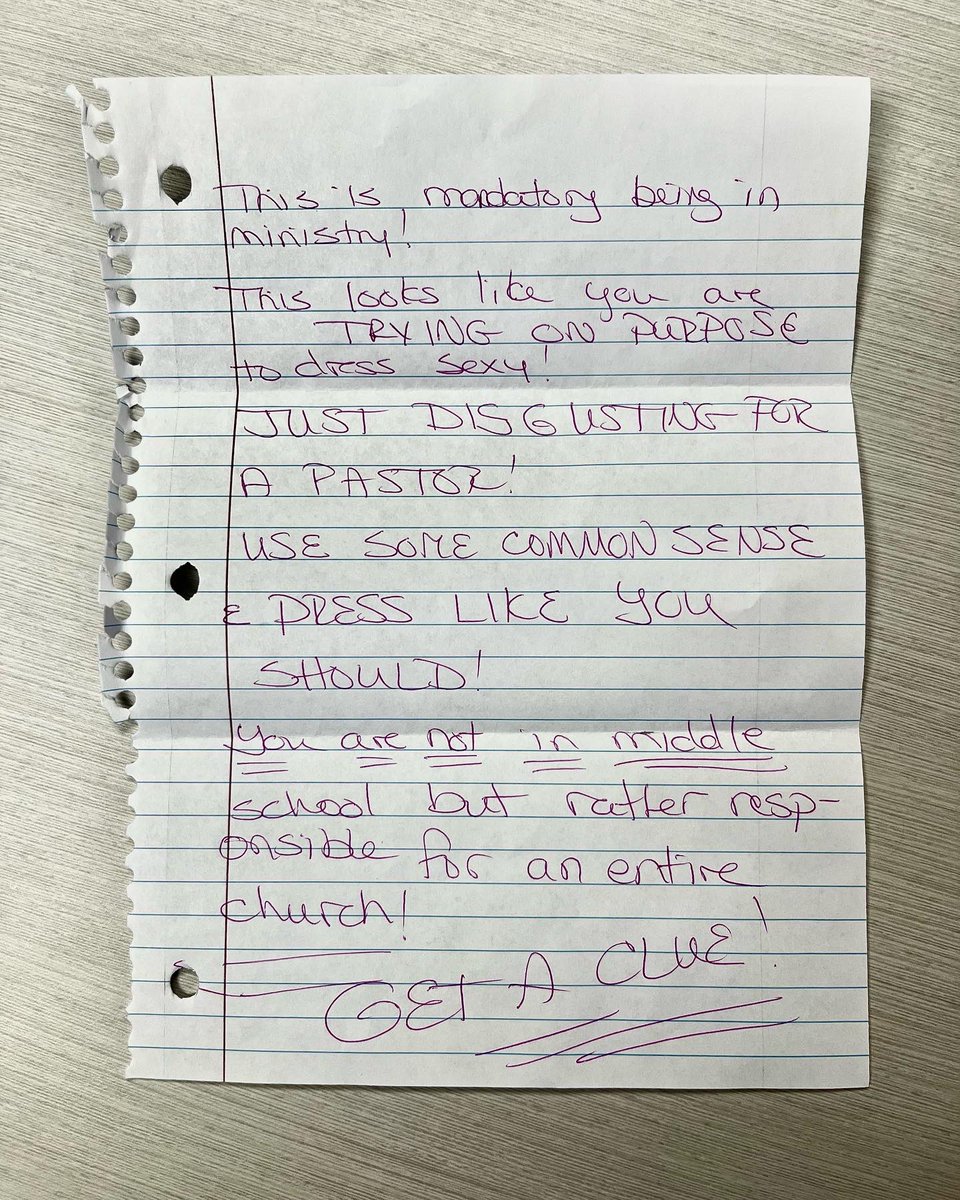 This is mandatory being in
ministry!
This looks like you are
TRYING ON PURPOSE
to dress sexy!
JUST DISGUSTING FOR
A PASTOR!
USE SOME COMMON SENSE
& DRESS LIKE YOU
SHOULD!
You are not in middle
school but ratter resp-
onsible for an entire
church!
GET A CLUE!